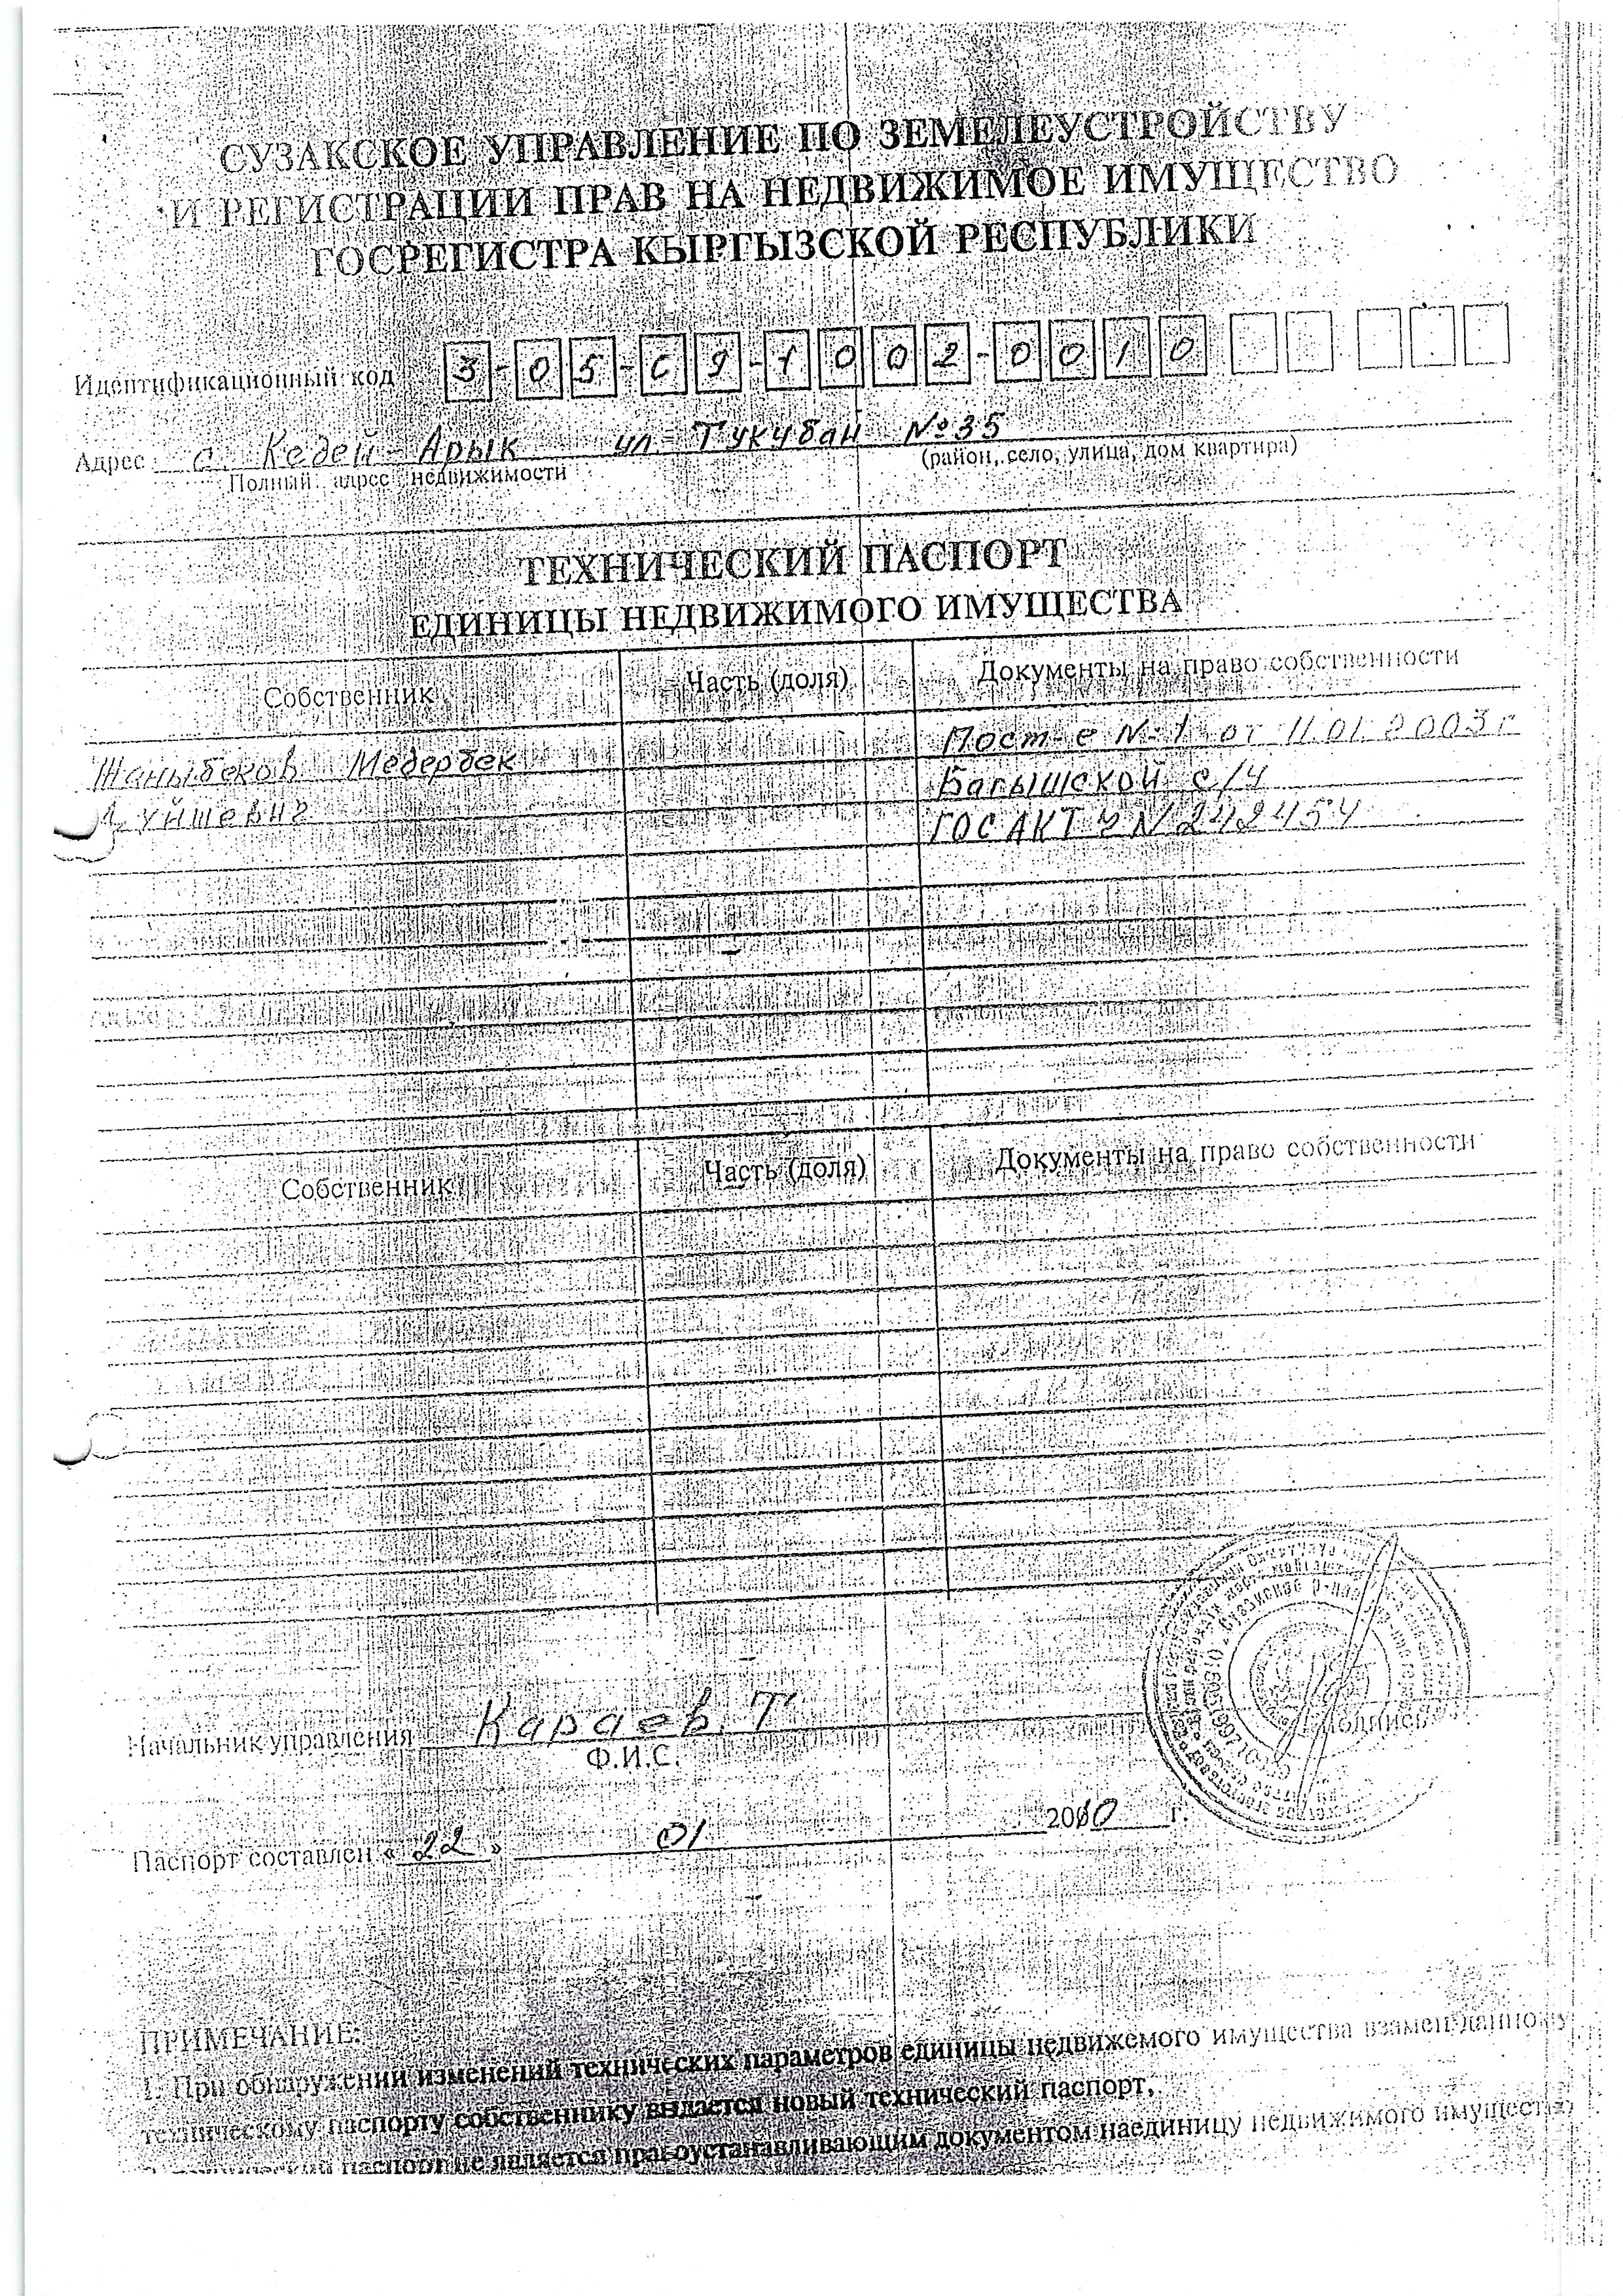 СУЗАКСКОЕ УПРАВЛЕНИЕ ПО ЗЕМЕЛЕУСТРОЙСТВУ
И РЕГИСТРАЦИИ ПРАВ НА НЕДВИЖИМОЕ ИМУЩЕСТВО
ГОСРЕГИСТРА КЫРГЫЗСКОЙ РЕСПУБЛИКИ
Идентификационный код 3-05-С9-1002-0010
Адрес: с. Кедей-Арык ул. Тукубай №35
Полный адрес недвижимости (район, село, улица, дом квартира)
ТЕХНИЧЕСКИЙ ПАСПОРТ
ЕДИНИЦЫ НЕДВИЖИМОГО ИМУЩЕСТВА
Собственник Часть (доля) Документы на право собственности
Жаныбеков Медербек Пост-е №1 от 11.01.2003г
Дуйшевич Багышской с/ч
ГОС АКТ ч N 242454
Собственник Часть (доля) Документы на право собственности
Начальник управления Караев. Т подпись
Ф.И.С.
Паспорт составлен «22» 01 2010 г.
ПРИМЕЧАНИЕ:
1. При обнаружении изменений технических параметров единицы недвижемого имущества взамен данному
техническому паспорту собственнику выдается новый технический паспорт,
паспорт не является правоустанавливающим документом наединицу недвижимого имущества